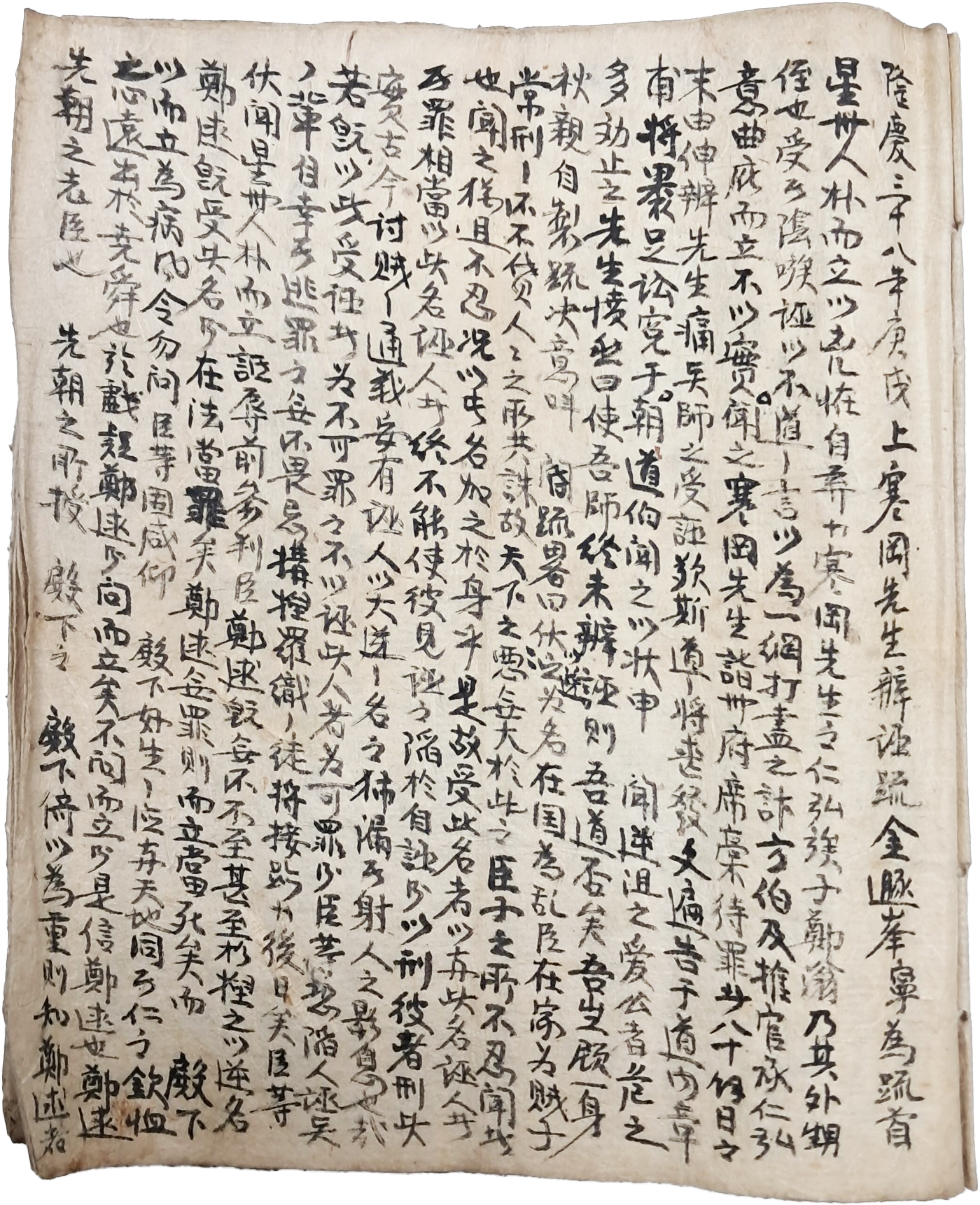 隆慶三十八年庚戌上寒岡先生辨誣疏金遯峯寧為疏首
星州人朴而立以老怪自弃於寒岡先生之仁弘族子鄭滃乃其外甥
侄也受而陰嗾誣以不道之言以為一網打盡之計方伯及推官承仁弘
意曲庇而立不以實聞之寒岡先生詣州府席藁待罪者八十餘日之
末由伸辨先生痛吾師之受誣欺斯道之將喪發文遍告于道內章
甫將裹足訟寃于朝道伯聞之以狀申聞逆沮之愛公者危之
多効止之先生憤然曰使吾師終未辨誣則吾道否矣吾豈顧一身
秋親自製疏決意叫閽疏畧曰伏以逆之為名在国為乱臣在家为賊子
常刑之不貸人人之所共誅故天下之惡無大於此之臣子之所不忍聞者
也聞之猶且不忍况以此名加之於身乎是故受此名者以弃此名誣人者
死罪相當以此名誣人者終不能使彼見誣之陷於自誣以刑彼者刑此
實古今討賊之通義安有誣人以大逆之名之掃漏而射人之影息也哉
若旣以此受誣者为不可罪之不以誣此人者为可罪臣等恐陷人誣吳
之輩自幸而逃罪之無不畏忌構捏羅織之徒將接跡於後日矣臣等
伏聞星州人朴而立詬辱前参判臣鄭逑旣無不不至甚至於捏之以逆名
鄭逑旣受此名在法當罪矣鄭逑無罪則而立當死矣而殿下
以而立為病风令勿问臣等固咸仰殿下好生之德弃天地同而仁之欽恤
之心遠出於堯舜也於戲疑鄭逑问而立矣不问而立是信鄭逑也鄭逑
先朝之老臣也先朝之所授殿下之殿下倚以為重則知鄭逑者